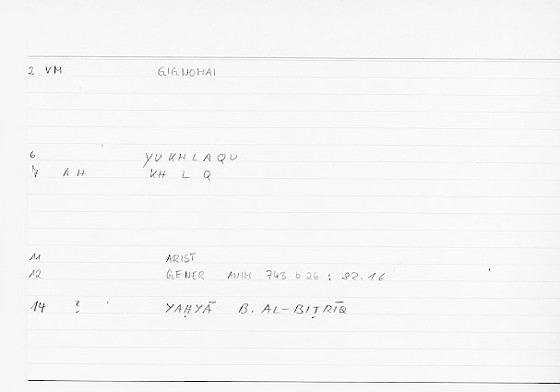 2 VM GIGNOMAI
6 YUKHLAQU
7 AH KH L Q
11 ARIST
12 GENER ANIM 743 b 26 : 82.16
14 ? YAḤYĀ B. AL-BIṬRĪQ